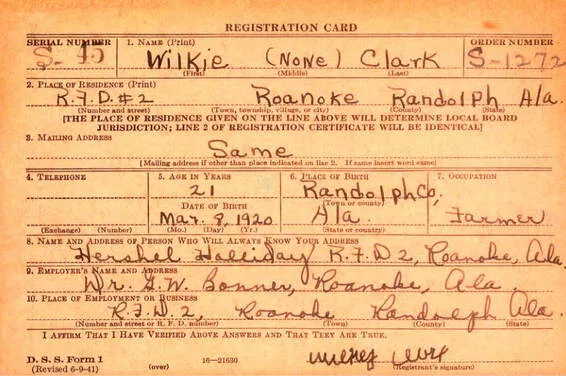 REGISTRATION CARD
SERIAL NUMBER 1. NAME (Print) ORDER NUMBER
S- Wilkie (None) Clark S-1272
(First) (Middle) (Last)
2. PLACE OF RESIDENCE (Print)
R.F.D.#2 Roanoke Randolph Ala.
(Number and street) (Town, township, village, or city) (County) (State)
[THE PLACE OF RESIDENCE GIVEN ON THE LINE ABOVE WILL DETERMINE LOCAL BOARD
JURISDICTION; LINE 2 OF REGISTRATION CERTIFICATE WILL BE IDENTICAL]
3. MAILING ADDRESS
Same
[Mailing address if other than place indicated on line 2. If same insert word same]
4. TELEPHONE 5. AGE IN YEARS 6. PLACE OF BIRTH 7. OCCUPATION
21 Randolph Co,
DATE OF BIRTH (Town or county)
Mar. 8, 1920 Ala. Farmer
(Exchange) (Number) (Mo.) (Day) (Yr.) (State or country)
8. NAME AND ADDRESS OF PERSON WHO WILL ALWAYS KNOW YOUR ADDRESS
Hershel Holliday R.F.D 2, Roanoke, Ala.
9. EMPLOYER'S NAME AND ADDRESS
Dr. G.W. Bonner, Roanoke, Ala.
10. PLACE OF EMPLOYMENT OR BUSINESS
R.F.D. 2, Roanoke Randolph Ala.
(Number and street or R. F. D. number) (Town) (County) (State)
I AFFIRM THAT I HAVE VERIFIED ABOVE ANSWERS AND THAT THEY ARE TRUE.
D. S. S. Form 1
(Revised 6-9-41) (over) 16—21630 (Registrant's signature)